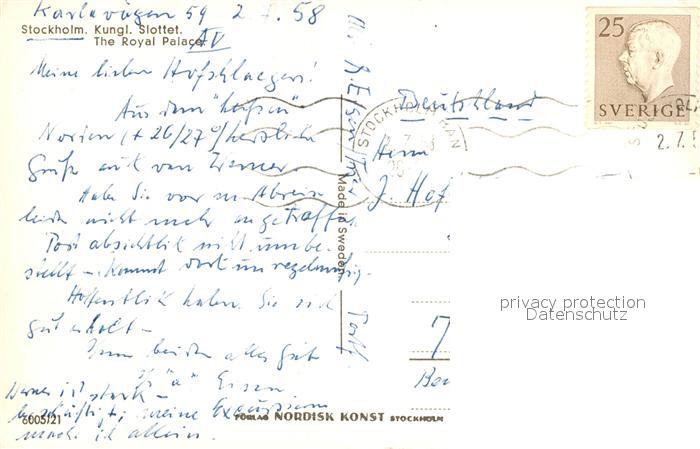 Karlavägen 59 2.7.58
Stockholm. Kungl. Slottet.
The Royal Palace.
IV
Meine lieben Hofschlaegers!
Aus dem "heißen"
Norden (+ 26/27°) herzliche
Grüße auch von Werner.
Habe Sie vor m. Abreise
leider nicht mehr angetroffen.
Post absichtlich nicht umbe-
stellt - kommt dort unregelmäßig.
Hoffentlich haben Sie sich
gut erholt -
Ihnen beiden alles Gute
Eisen
Werner ist stark
beschäftigt; meine Excursionen
mache ich allein.
6005/21
FÖRLAG NORDISK KONST STOCKHOLM
Made in Sweden
Deutschland
STOCKHOLM BAN
25
SVERIGE
2.7.5
Herrn
J. Hof
7
Ber
privacy protection
Datenschutz